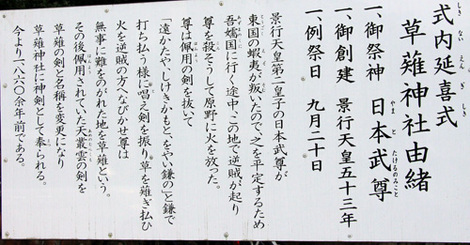 式内延喜式
草薙神社由緒
一、御祭神 日本武尊
一、御創建 景行天皇五十三年
一、例祭日 九月二十日
景行天皇第二皇子の日本武尊が
東国の蝦夷が叛いたので、之を平定するため
吾嬬国に行く途中、この地で逆賊が起り
尊を殺そうして原野に火を放った。
尊は佩用の剣を抜いて
「遠かたや、しげきかもと、をやい鎌の」と鎌で
打ち払う様に唱え剣を振り草を薙ぎ払ひ
火を逆賊の方へなびかせ尊は
無事に難をのがれた地を草薙という。
その後佩用されていた天叢雲の剣を
草薙の剣と名稱を変更になり
草薙神社に神剣として奉られる。
今より一八六〇余年前である。